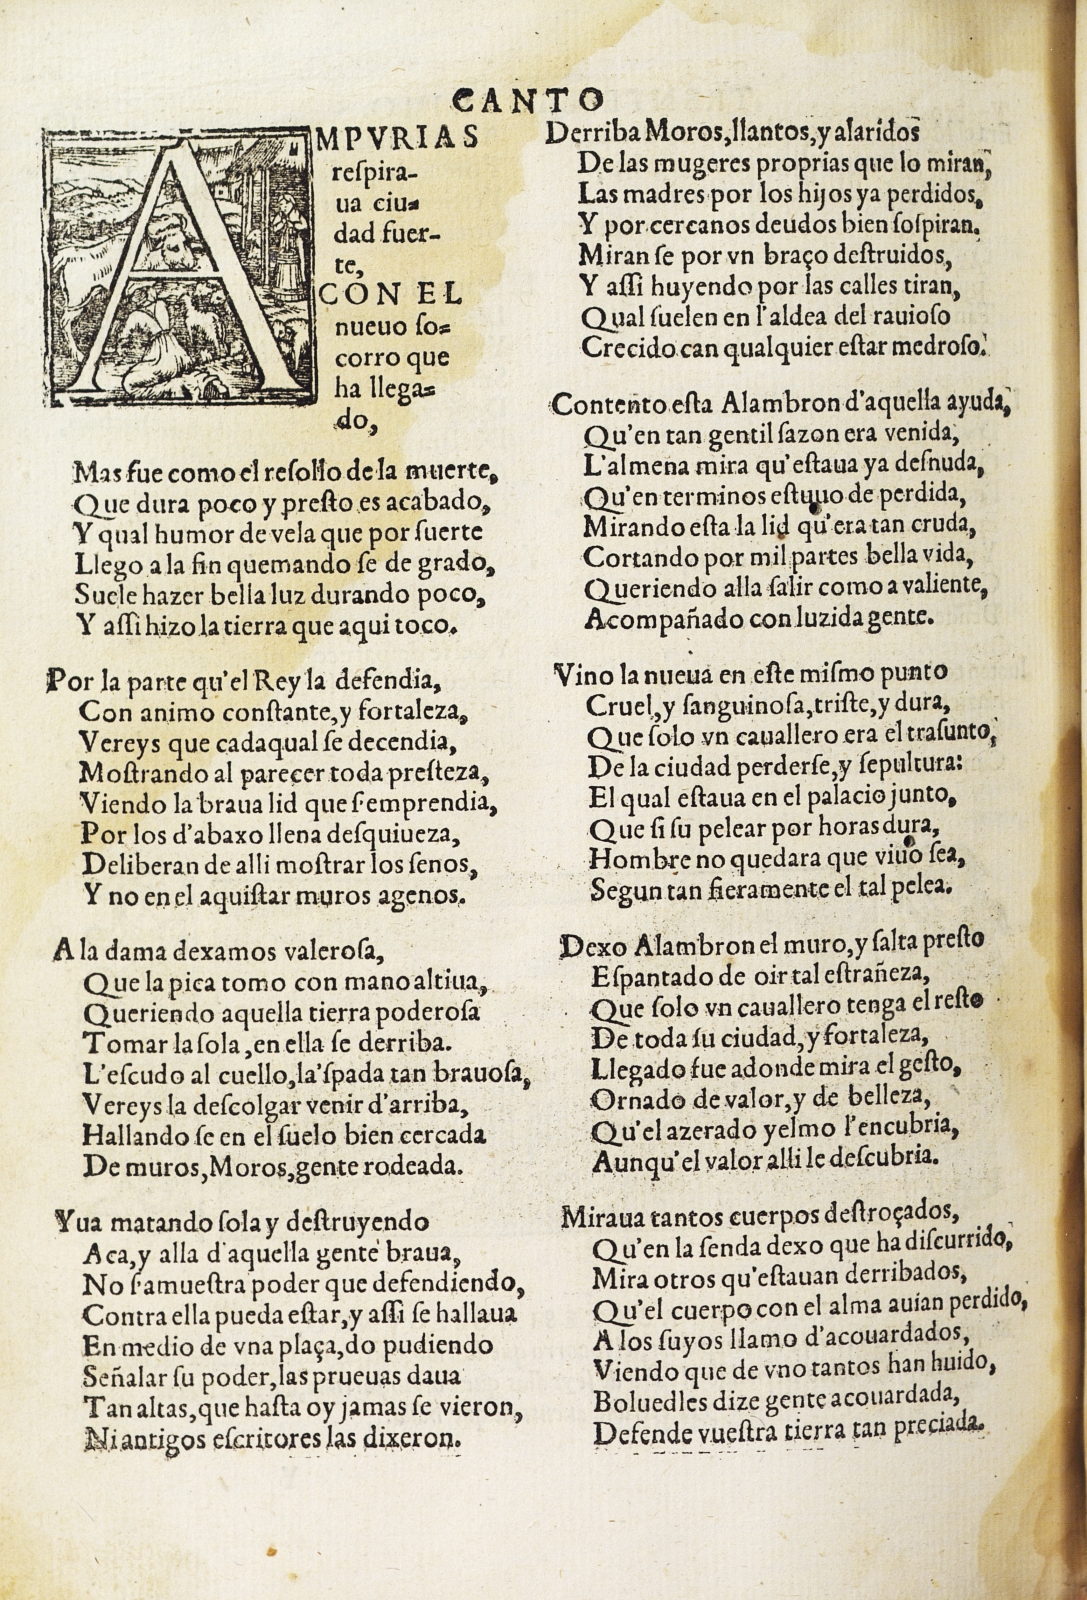 CANTO
AMPVRIAS
reſpira-
ua ciu-
dad fuer-
te,
CON EL
nueuo ſo-
corro que
ha llega-
do,
Mas fue como el reſollo de la muerte,
Que dura poco y preſto es acabado,
Y qual humor de vela que por ſuerte
Llego a la fin quemando ſe de grado,
Suele hazer bella luz durando poco,
Y aſſi hizo la tierra que aqui toco.
Por la parte qu'el Rey la defendia,
Con animo conſtante, y fortaleza,
Vereys que cadaqual ſe decendia,
Moſtrando al parecer toda preſteza,
Viendo la braua lid que ſ'emprendia,
Por los d'abaxo llena deſquiueza,
Deliberan de alli moſtrar los ſenos,
Y no en el aquiſtar muros agenos.
A la dama dexamos valeroſa,
Que la pica tomo con mano altiua,
Queriendo aquella tierra poderoſa
Tomar la ſola, en ella ſe derriba.
L'eſcudo al cuello, la'ſpada tan brauoſa,
Vereys la deſcolgar venir d'arriba,
Hallando ſe en el ſuelo bien cercada
De muros, Moros, gente rodeada.
Yua matando ſola y deſtruyendo
Aca, y alla d'aquella gente braua,
No ſ'amueſtra poder que defendiendo,
Contra ella pueda eſtar, y aſſi ſe hallaua
En medio de vna plaça, do pudiendo
Señalar ſu poder, las prueuas daua
Tan altas, que haſta oy jamas ſe vieron,
Ni antigos eſcritores las dixeron.
Derriba Moros, llantos, y alaridos
De las mugeres proprias que lo miran,
Las madres por los hijos ya perdidos,
Y por cercanos deudos bien ſoſpiran.
Miran ſe por vn braço deſtruidos,
Y aſſi huyendo por las calles tiran,
Qual ſuelen en l'aldea del rauioſo
Crecido can qualquier eſtar medroſo.
Contento eſta Alambron d'aquella ayuda,
Qu'en tan gentil ſazon era venida,
L'almena mira qu'eſtaua ya deſnuda,
Qu'en terminos eſtuuo de perdida,
Mirando eſta la lid qu'era tan cruda,
Cortando por mil partes bella vida,
Queriendo alla ſalir como a valiente,
Acompañado con luzida gente.
Vino la nueua en eſte miſmo punto
Cruel, y ſanguinoſa, triſte, y dura,
Que ſolo vn cauallero era el traſunto,
De la ciudad perderſe, y ſepultura:
El qual eſtaua en el palacio junto,
Que ſi ſu pelear por horas dura,
Hombre no quedara que viuo ſea,
Segun tan fieramente el tal pelea.
Dexo Alambron el muro, y ſalta preſto
Eſpantado de oir tal eſtrañeza,
Que ſolo vn cauallero tenga el reſto
De toda ſu ciudad, y fortaleza,
Llegado fue adonde mira el geſto,
Ornado de valor, y de belleza,
Qu'el azerado yelmo l'encubria,
Aunqu'el valor alli le deſcubria.
Miraua tantos cuerpos deſtroçados,
Qu'en la ſenda dexo que ha diſcurrido,
Mira otros qu'eſtauan derribados,
Qu'el cuerpo con el alma auian perdido,
A los ſuyos llamo d'acouardados,
Viendo que de vno tantos han huido,
Boluedles dize gente acouardada,
Defende vueſtra tierra tan preciada.